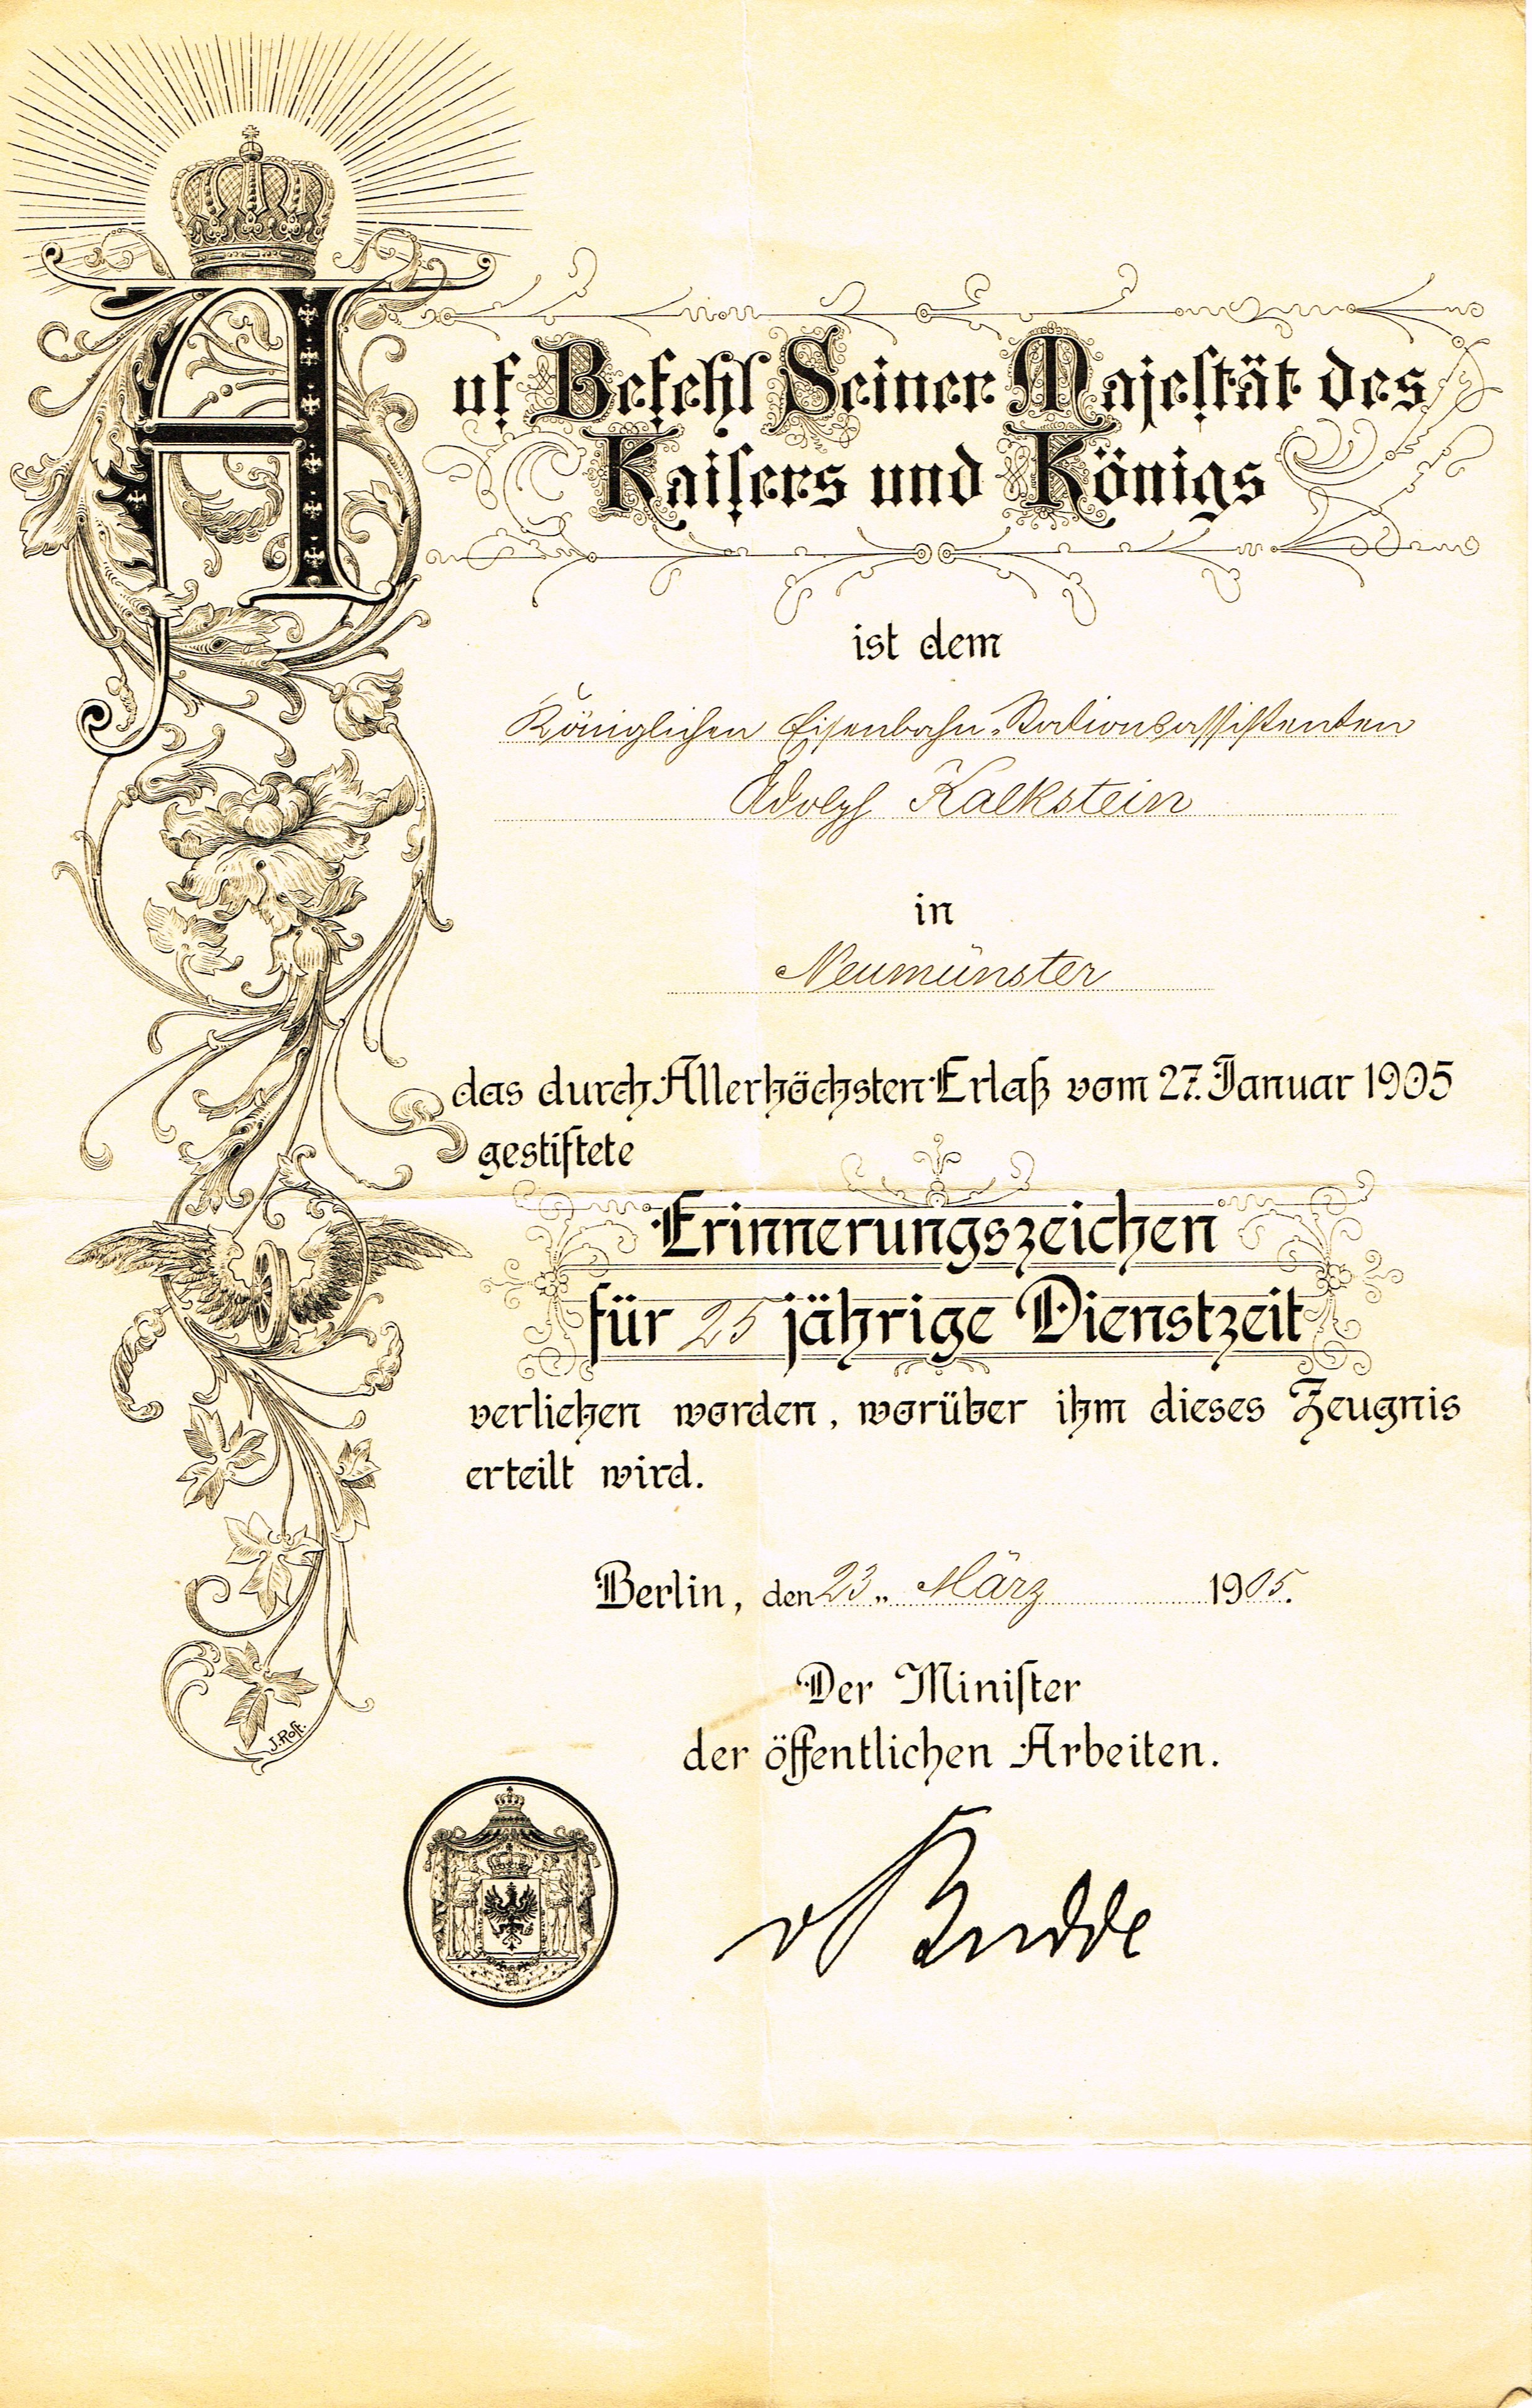 Auf Befehl Seiner Majeſtät des
Kaiſers und Königs
ist dem
Königlichen Eisenbahn-Stationsassistenten
Adolph Kalkstein
in
Neumünster
das durch Allerhöchsten Erlaß vom 27. Januar 1905
geſtiftete
Erinnerungszeichen
für 25 jährige Dienstzeit
verliehen worden, worüber ihm dieses Zeugnis
erteilt wird.
Berlin, den 23. März 1905.
Der Miniſter
der öffentlichen Arbeiten.
v Budde
J. Roſt.